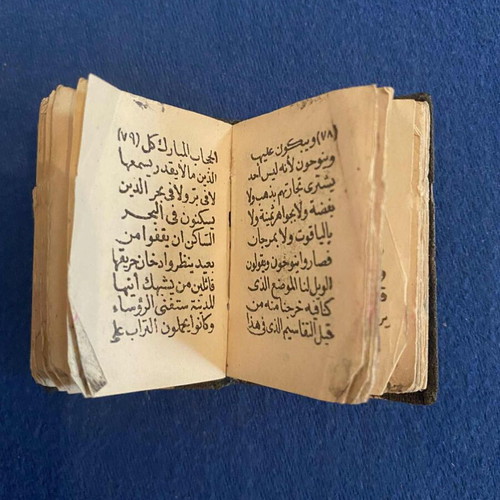 (٧٨) ويبكون عليها
وينوحون لأنه ليس احد
يشترى تجارتهم بذهب ولا
بفضة ولا بجواهر ثمينة ولا
بالياقوت ولا بمرجان
فصاروا ينوحون ويقولون
الويل لنا الموضع الذى
كافه خرجنا منه من
قبل القاسيم الذى فى هذا
(٧٩) الحجاب المبارك كل
الذين ما لا يقدر يسمعها
لا فى بر ولا فى بحر الذين
يسكنون فى البحر
الساكن ان يقفوا من
بعيد ينظروا دخان حريقها
قائلين من يشبهك أيتها
المدينة ستفنى الرؤساء
وكانوا يعملون التراب على